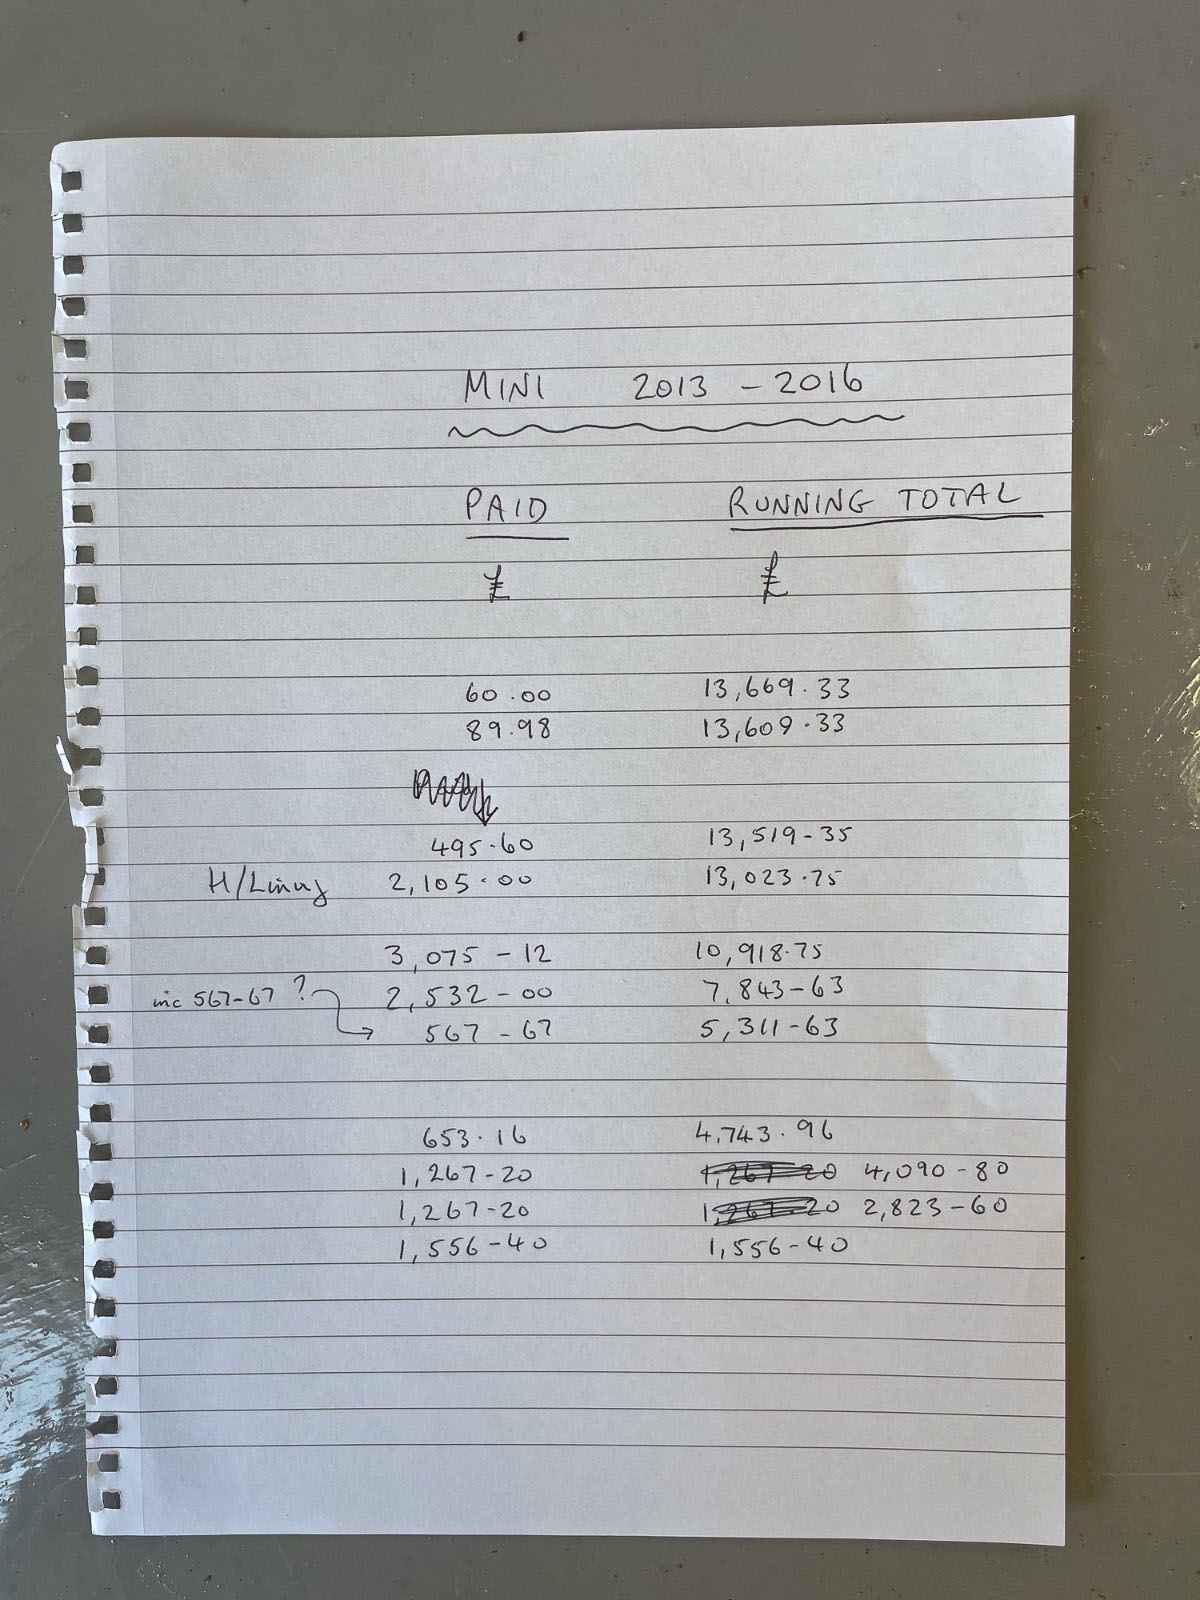 MINI 2013 - 2016
PAID RUNNING TOTAL
£ £
60.00 13,669.33
89.98 13,609.33
495.60 13,519-35
H/Lining 2,105.00 13,023.75
3,075-12 10,918.75
inc 567-67 ? 2,532-00 7,843-63
567-67 5,311-63
653.16 4,743.96
1,267-20 1,267-20 4,090-80
1,267-20 1,267-20 2,823-60
1,556-40 1,556-40